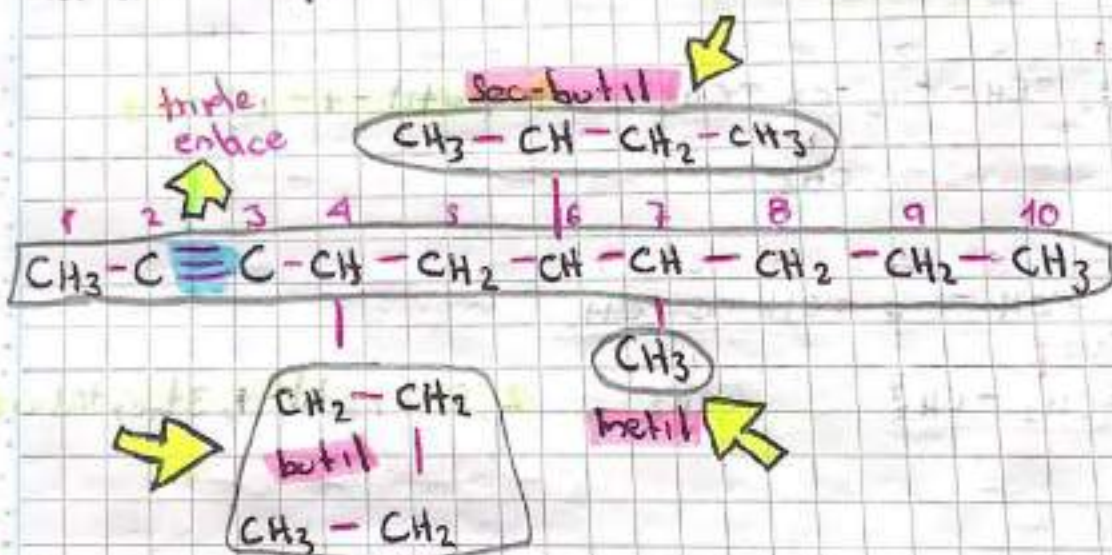 triple
enlace
Sec-butil
CH3 - CH - CH2 - CH3
1 2 3 4 5 6 7 8 9 10
CH3 - C ≡ C - CH - CH2 - CH - CH - CH2 - CH2 - CH3
CH2 - CH2
butil
CH3 - CH2
CH3
metil